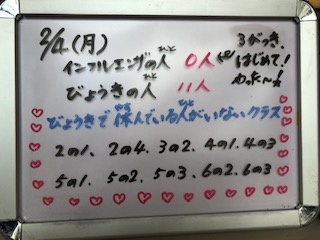 2/4(月)
インフルエンザの人 0人
びょうきの人 11人
3がっき、
はじめて!
わぁ〜!
びょうきで休んでいる人がいないクラス
2の1、2の4、3の2、4の1、4の3
5の1、5の2、5の3、6の2、6の3